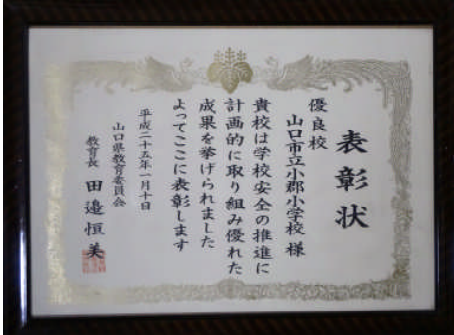 表彰状
優良校
山口市立小郡小学校 様
貴校は学校安全の推進に
計画的に取り組み優れた
成果を挙げられました
よってここに表彰します
平成二十五年一月十日
山口県教育委員会
教育長 田邉恒美